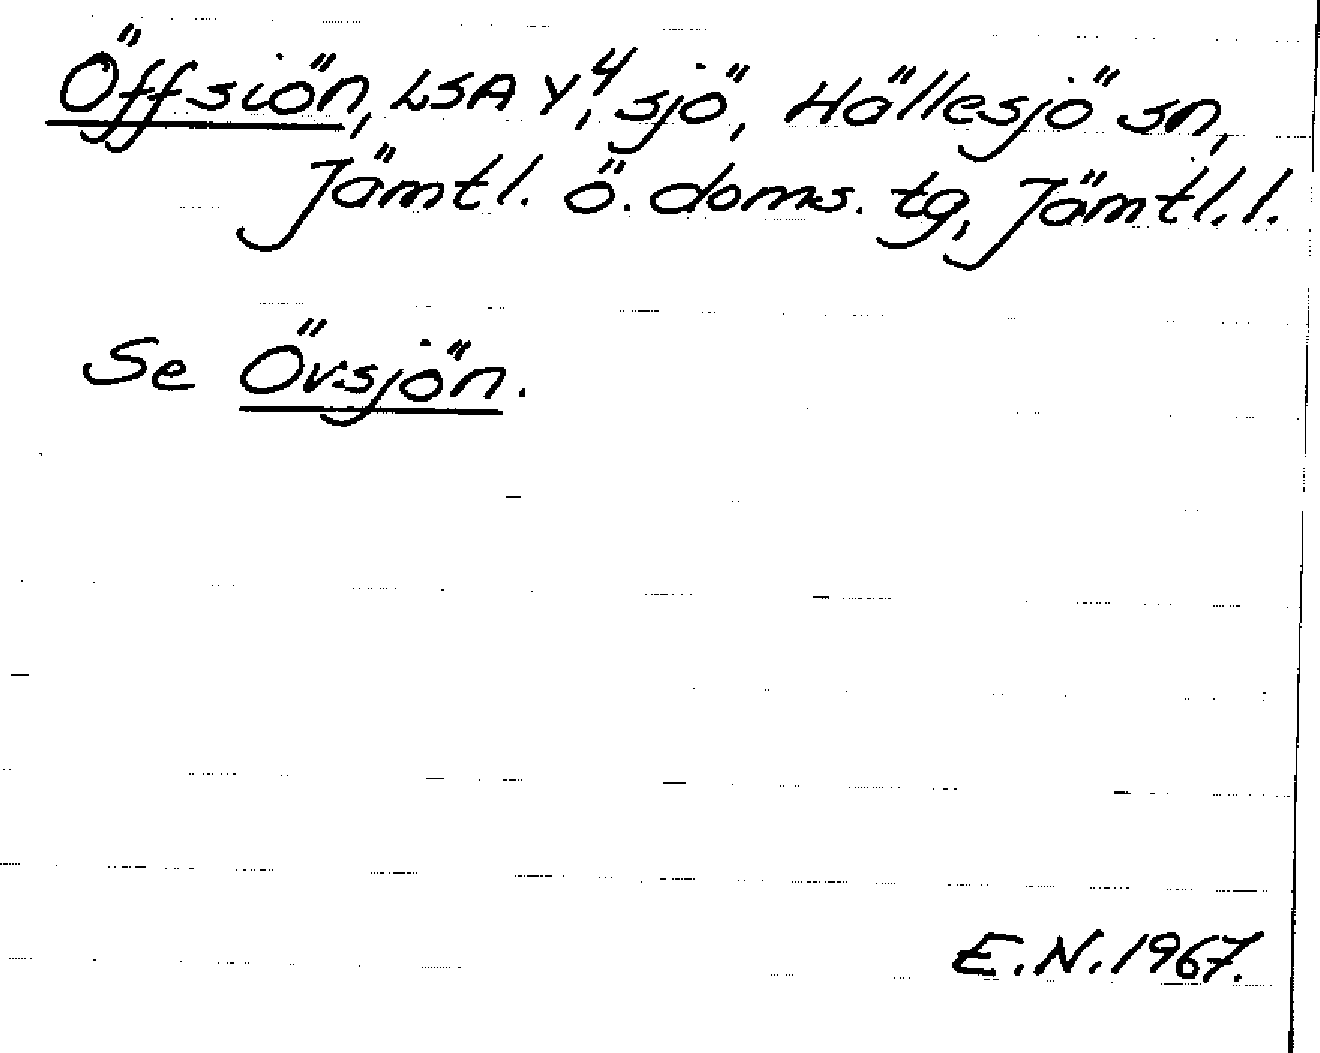 Öffsiön, LSA Y⁴, sjö, Hällesjö sn,
Jämtl. ö. doms. tg, Jämtl. l.
Se Övsjön.
E.N. 1967.